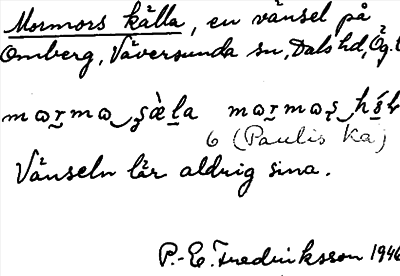 Mormors källa, en vänsel på
Omberg, Väversunda sn, Dals hd, Ög.
6 (Paulis Ka)
Vänseln lär aldrig sina.
P.-E. Fredriksson 1946